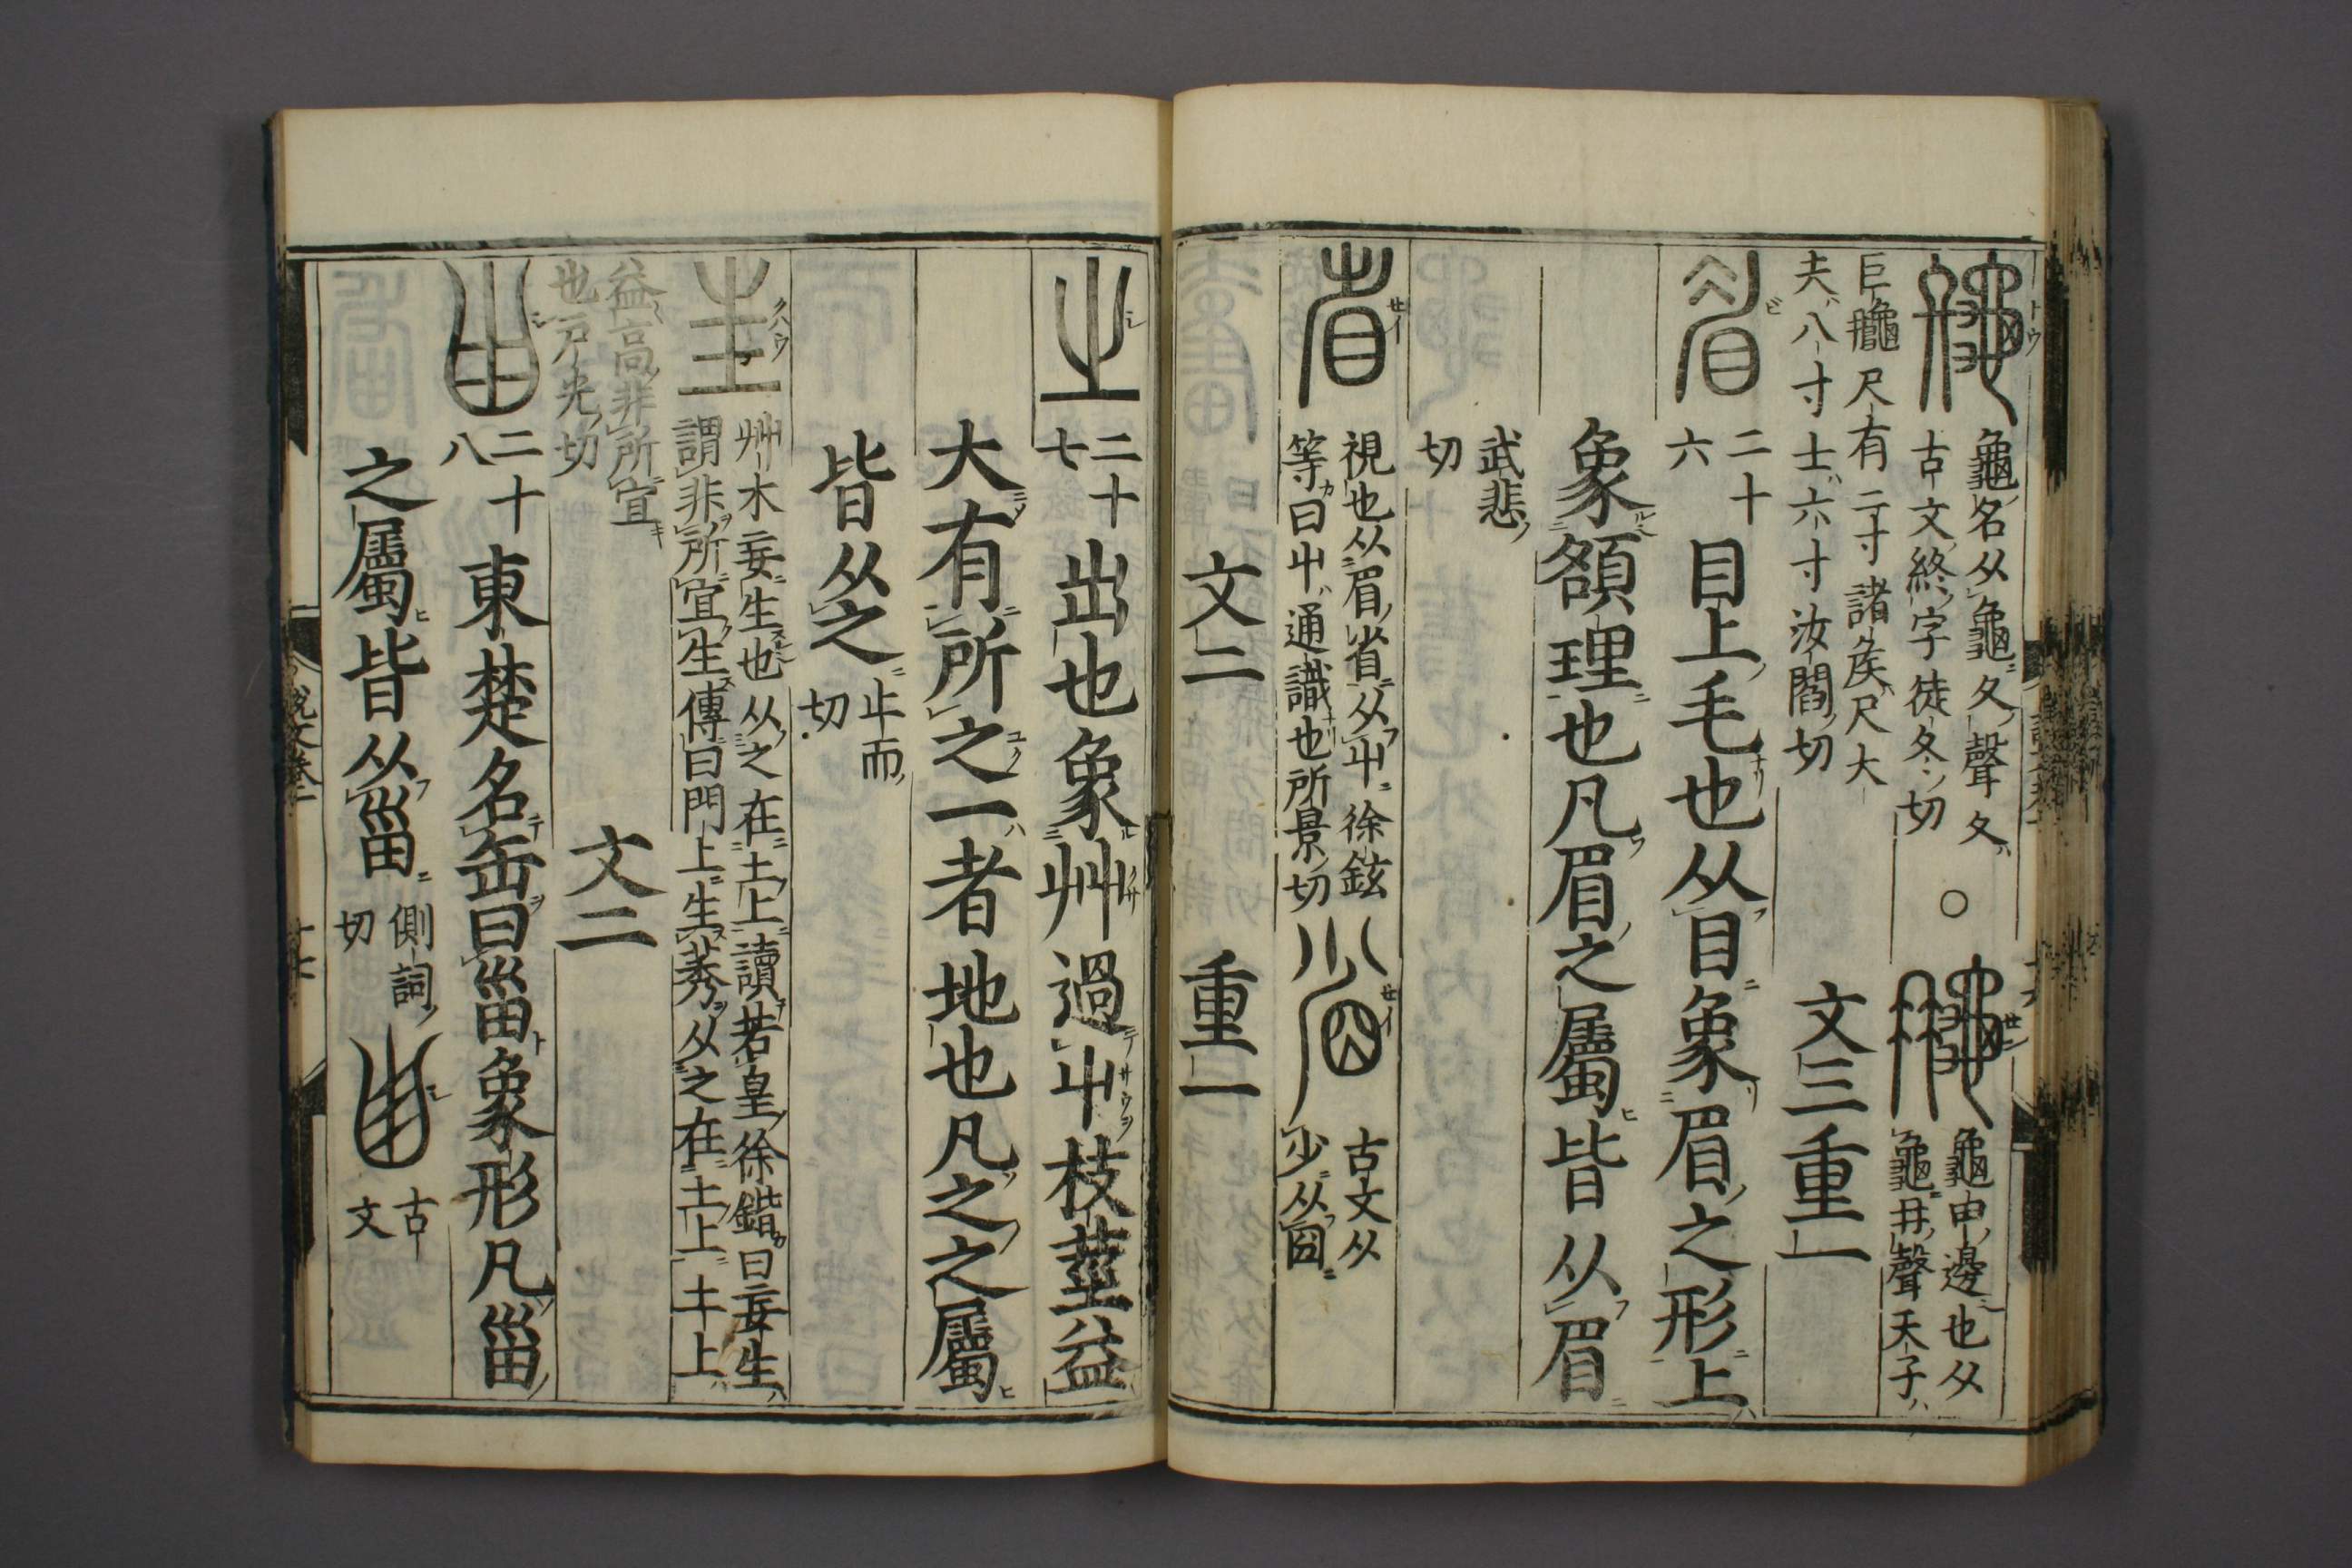 龜名从龜夂聲夂
古文終字徒冬切
○
龜甲邊也从
龜冄聲天子
巨𪚮尺有二寸諸矦尺大
夫八寸士六寸汝閻切
文三重一
眉
二十
六
目上毛也从目象眉之形上
象頟理也凡眉之屬皆从眉
武悲
切
省
視也从眉省从屮徐鉉
等曰屮通識也所景切
古文从
少从囧
文二
重一
之
二十
七
出也象艸過屮枝莖益
大有所之一者地也凡之之屬
皆从之
止而
切
艸木妄生也从之在土上讀若皇徐鍇曰妄生
謂非所宜生傳曰門上生莠从之在土上土上
益高非所宜
也戸光切
文二
甾
二十
八
東楚名缶曰甾象形凡甾
之屬皆从甾
側詞
切
古
文
說文卷二
十七